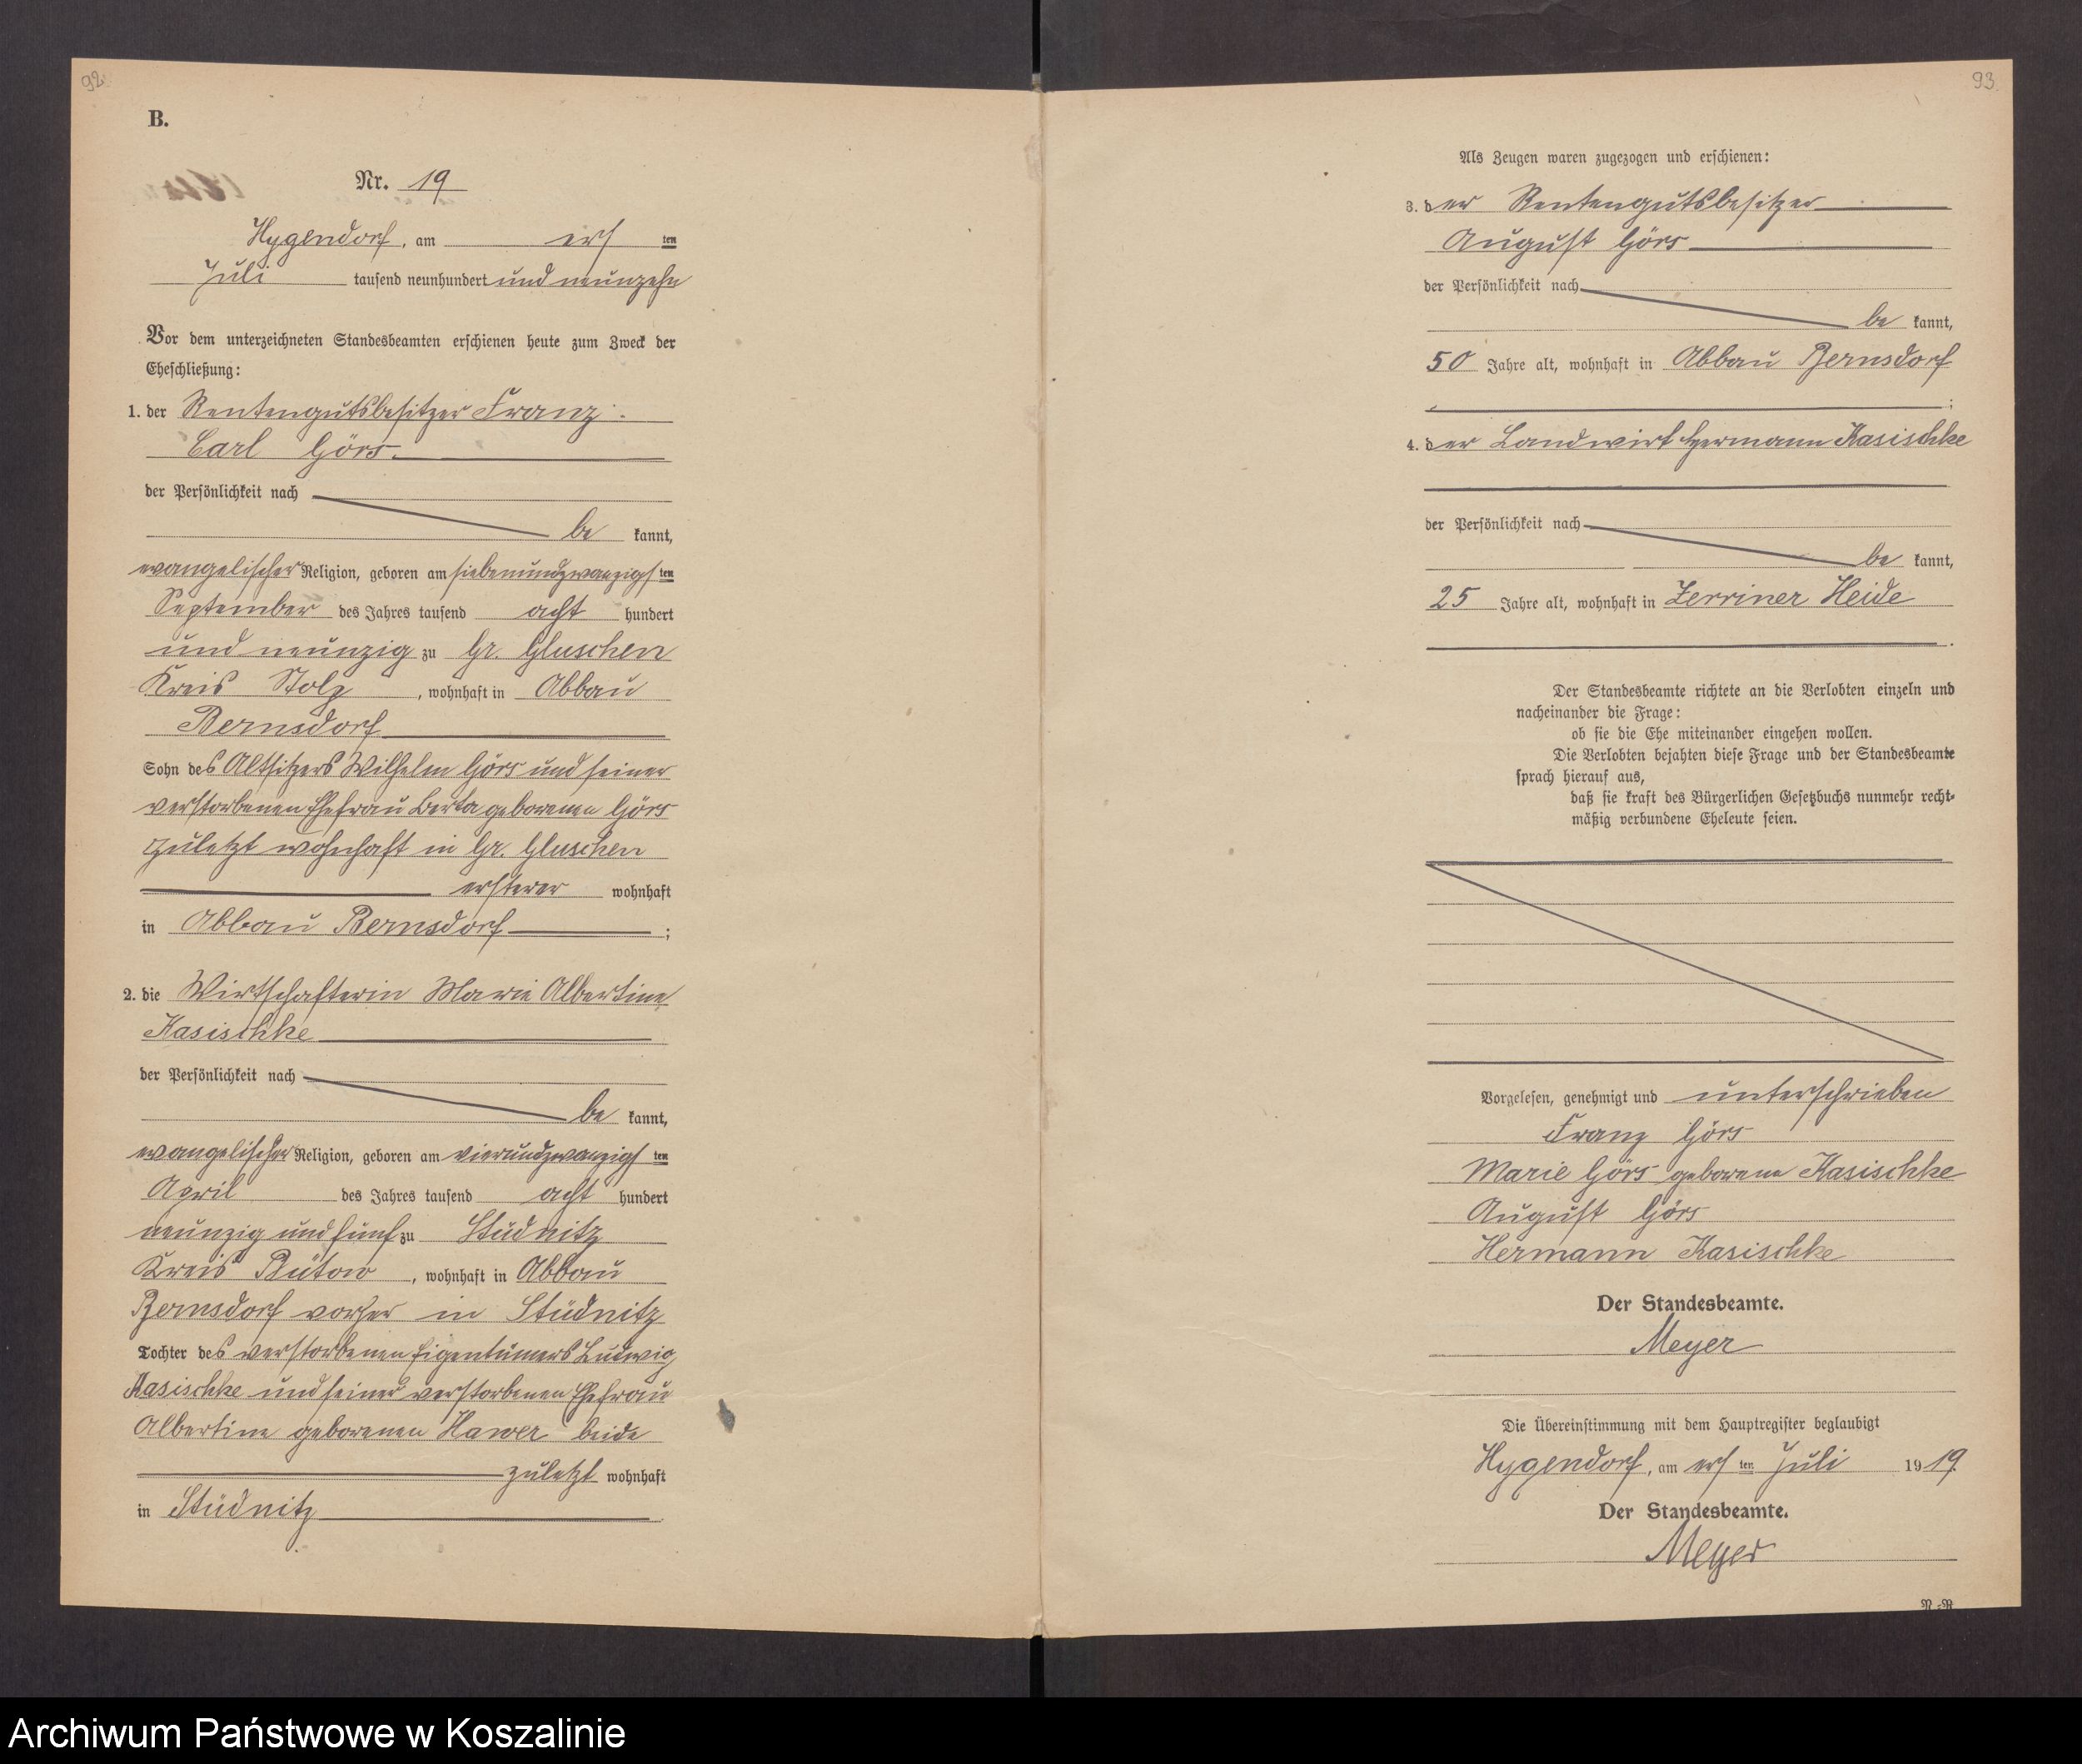 92.
B.
Nr. 19
Hygendorf, am erſ ten
Juli tauſend neunhundert und neunzehn
Vor dem unterzeichneten Standesbeamten erſchienen heute zum Zweck der
Eheſchließung:
1. der Rentengutsbesitzer Franz
Carl Görs.
der Perſönlichkeit nach
be kannt,
evangelischer Religion, geboren am siebenundzwanzigs ten
September des Jahres tauſend acht hundert
und neunzig zu Gr. Gluschen
Kreis Stolp, wohnhaft in Abbau
Bernsdorf
Sohn des Altsitzers Wilhelm Görs und seiner
verstorbenen Ehefrau Berta geborenen Görs
zuletzt wohnhaft in Gr. Gluschen
ersterer wohnhaft
in Abbau Bernsdorf ;
2. die Wirtschafterin Marie Albertine
Kasischke
der Perſönlichkeit nach
be kannt,
evangelischer Religion, geboren am vierundzwanzigs ten
April des Jahres tauſend acht hundert
neunzig und fünf zu Stüdnitz
Kreis Bütow, wohnhaft in Abbau
Bernsdorf vorher in Stüdnitz
Tochter des verstorbenen Eigentümers Ludwig
Kasischke und seiner verstorbenen Ehefrau
Albertine geborenen Hawer beide
zuletzt wohnhaft
in Stüdnitz
93.
Als Zeugen waren zugezogen und erſchienen:
3. der Rentengutsbesitzer
August Görs
der Perſönlichkeit nach
be kannt,
50 Jahre alt, wohnhaft in Abbau Bernsdorf
;
4. der Landwirt Hermann Kasischke
der Perſönlichkeit nach
be kannt,
25 Jahre alt, wohnhaft in Zerriner Heide
.
Der Standesbeamte richtete an die Verlobten einzeln und
nacheinander die Frage:
ob ſie die Ehe miteinander eingehen wollen.
Die Verlobten bejahten dieſe Frage und der Standesbeamte
ſprach hierauf aus,
daß ſie kraft des Bürgerlichen Geſetzbuchs nunmehr recht-
mäßig verbundene Eheleute ſeien.
Vorgeleſen, genehmigt und unterschrieben
Franz Görs
Marie Görs geborene Kasischke
August Görs
Hermann Kasischke
Der Standesbeamte.
Meyer
Die Übereinſtimmung mit dem Hauptregiſter beglaubigt
Hygendorf, am ers ten Juli 1919.
Der Standesbeamte.
Meyer
Archiwum Państwowe w Koszalinie